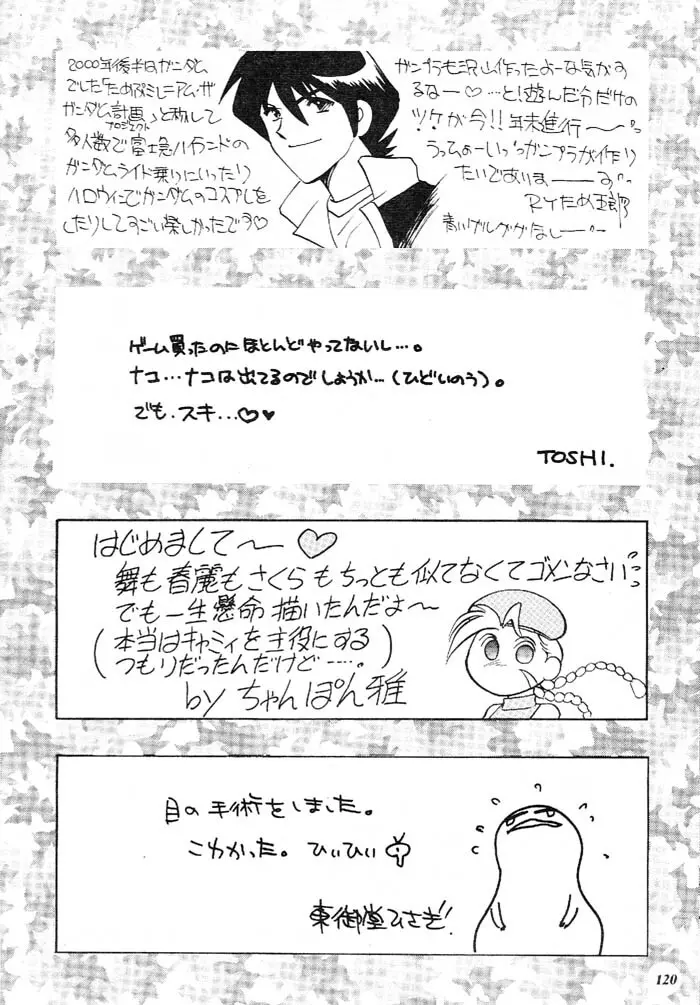 2000年後半はガンダム
でした「ため及ミレニアム・ザ
ガンダム計画プロジェクト」と称して
多人数で富士急ハイランドの
ガンダムライド乗りにいったり
ハロウィンでガンダムのコスプレをし
たりしてすごい楽しかったです♡
ガンプラも沢山作ったよーな気がす
るなー♡…と!遊んだ分だけの
ツケが今!!年末進行〜
うってぉーいっガンプラが作り
たいでありまーーす
BYため
ゲーム買ったのにほとんどやってないし…。
ナコ…ナコは出てるのでしょうか…(ひどいのう)。
でも、スキ…♡♥
TOSHI.
はじめまして〜♡
舞も春麗もさくらもちっとも似てなくてゴメンなさい
でも一生懸命描いたんだよ〜
(本当はキャミィを主役にする
つもりだったんだけど……。)
by ちゃんぽん雅
目の手術をしました。
こわかった。ひぃひぃ
東御堂ひさぎ!
120